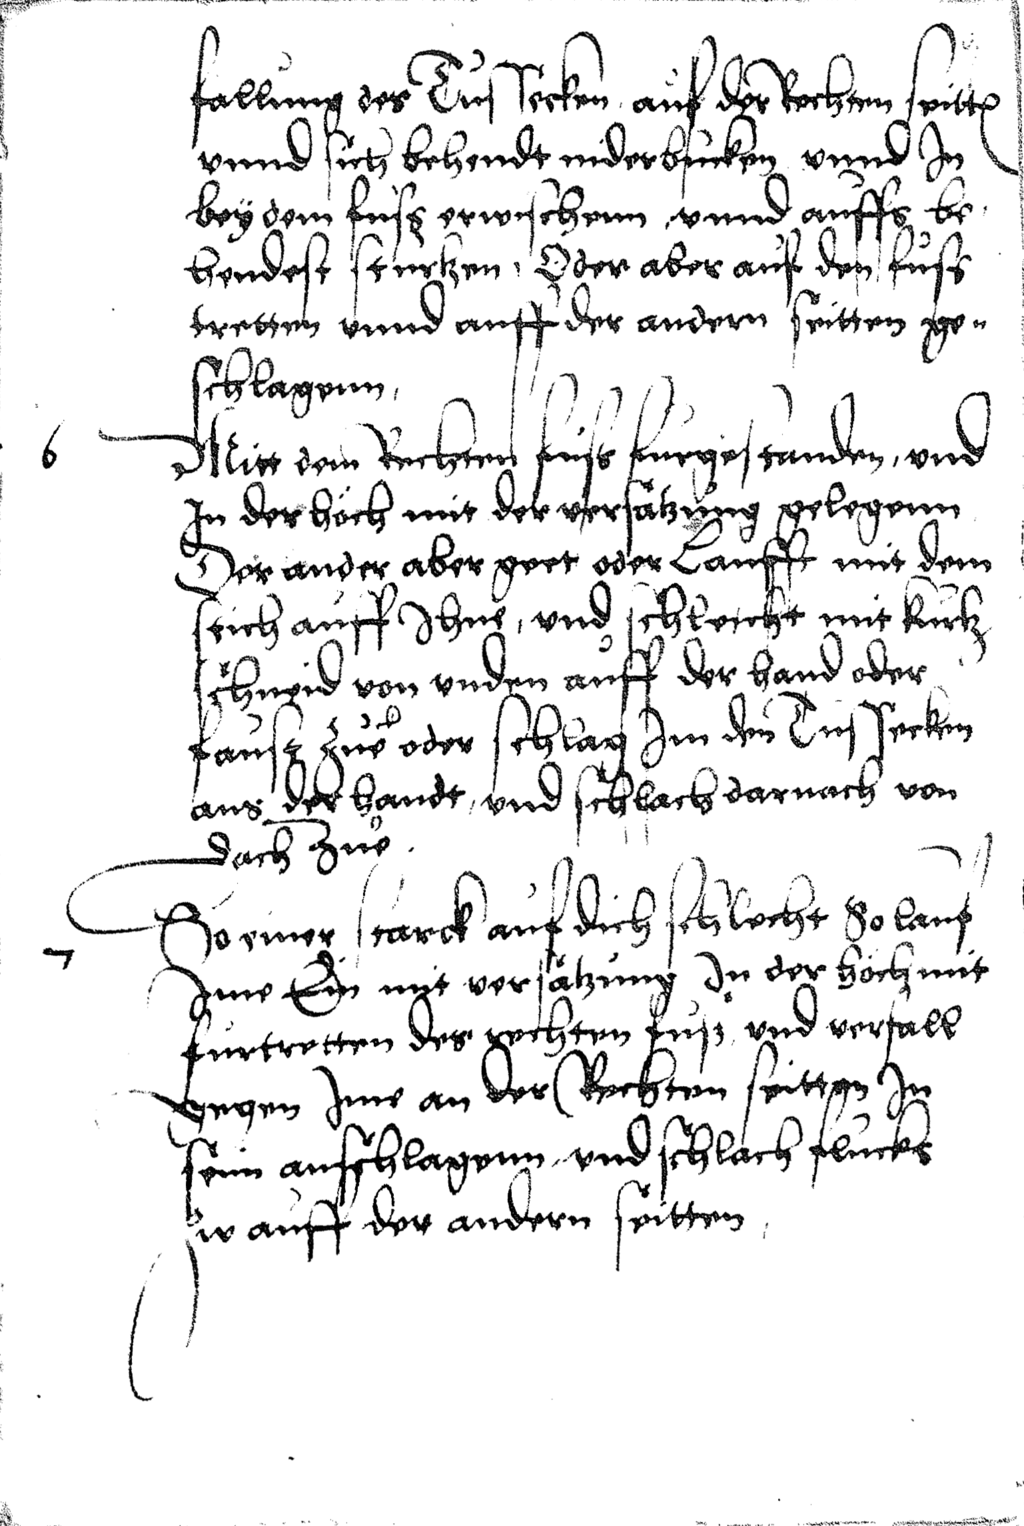 fallung des Tussecken auf der Rechten seitte
vnnd sich behendt niderbucken vnnd In
bey dem fuß erwischenn vnnd auffs be
hendest sturtzen, Oder aber auf den fuss
tretten vnnd auff der andern seitten ge=
schlagenn,
6 Mitt dem Rechten fuss furgestanden, vnd
In der höch mit der versatzung gelegenn
Der ander aber geet oder Laufft mit dem
stich auff Ihne, vnd schleicht mit kurtz
schneid von vnden auff der hand oder
faust zue oder schlag Im den Tussecken
aus der handt, vnd schlach darnach von
dach zue.
7 So einer starck auf dich schlecht So lauf
Ime Ein mit versatzung In der höch mit
furtretten des rechten fuß vnd verfall
gegen Ime an der Rechten seitten In
seim aufschlagenn vnd schlach flucks
auff der andern seitten,